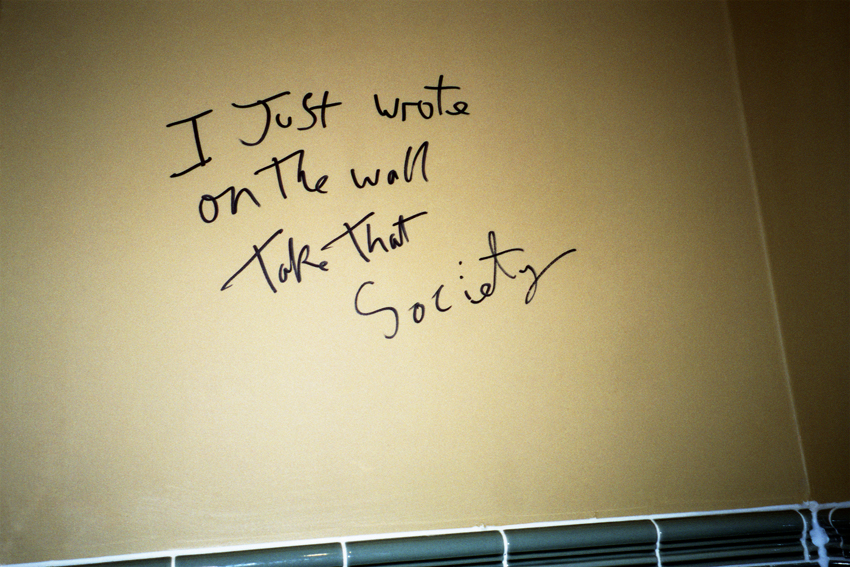 I Just wrote
on The wall
Take That
Society